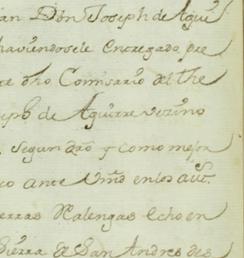 an Dõn Joseph de Agui
haviendosele Entregado pre
te dho Comisario del The
eph de Aguirre vezino
segun dro y como mejor
co ante Vmd en los aut
erras Realengas Echo en
Sierra de San Andres des